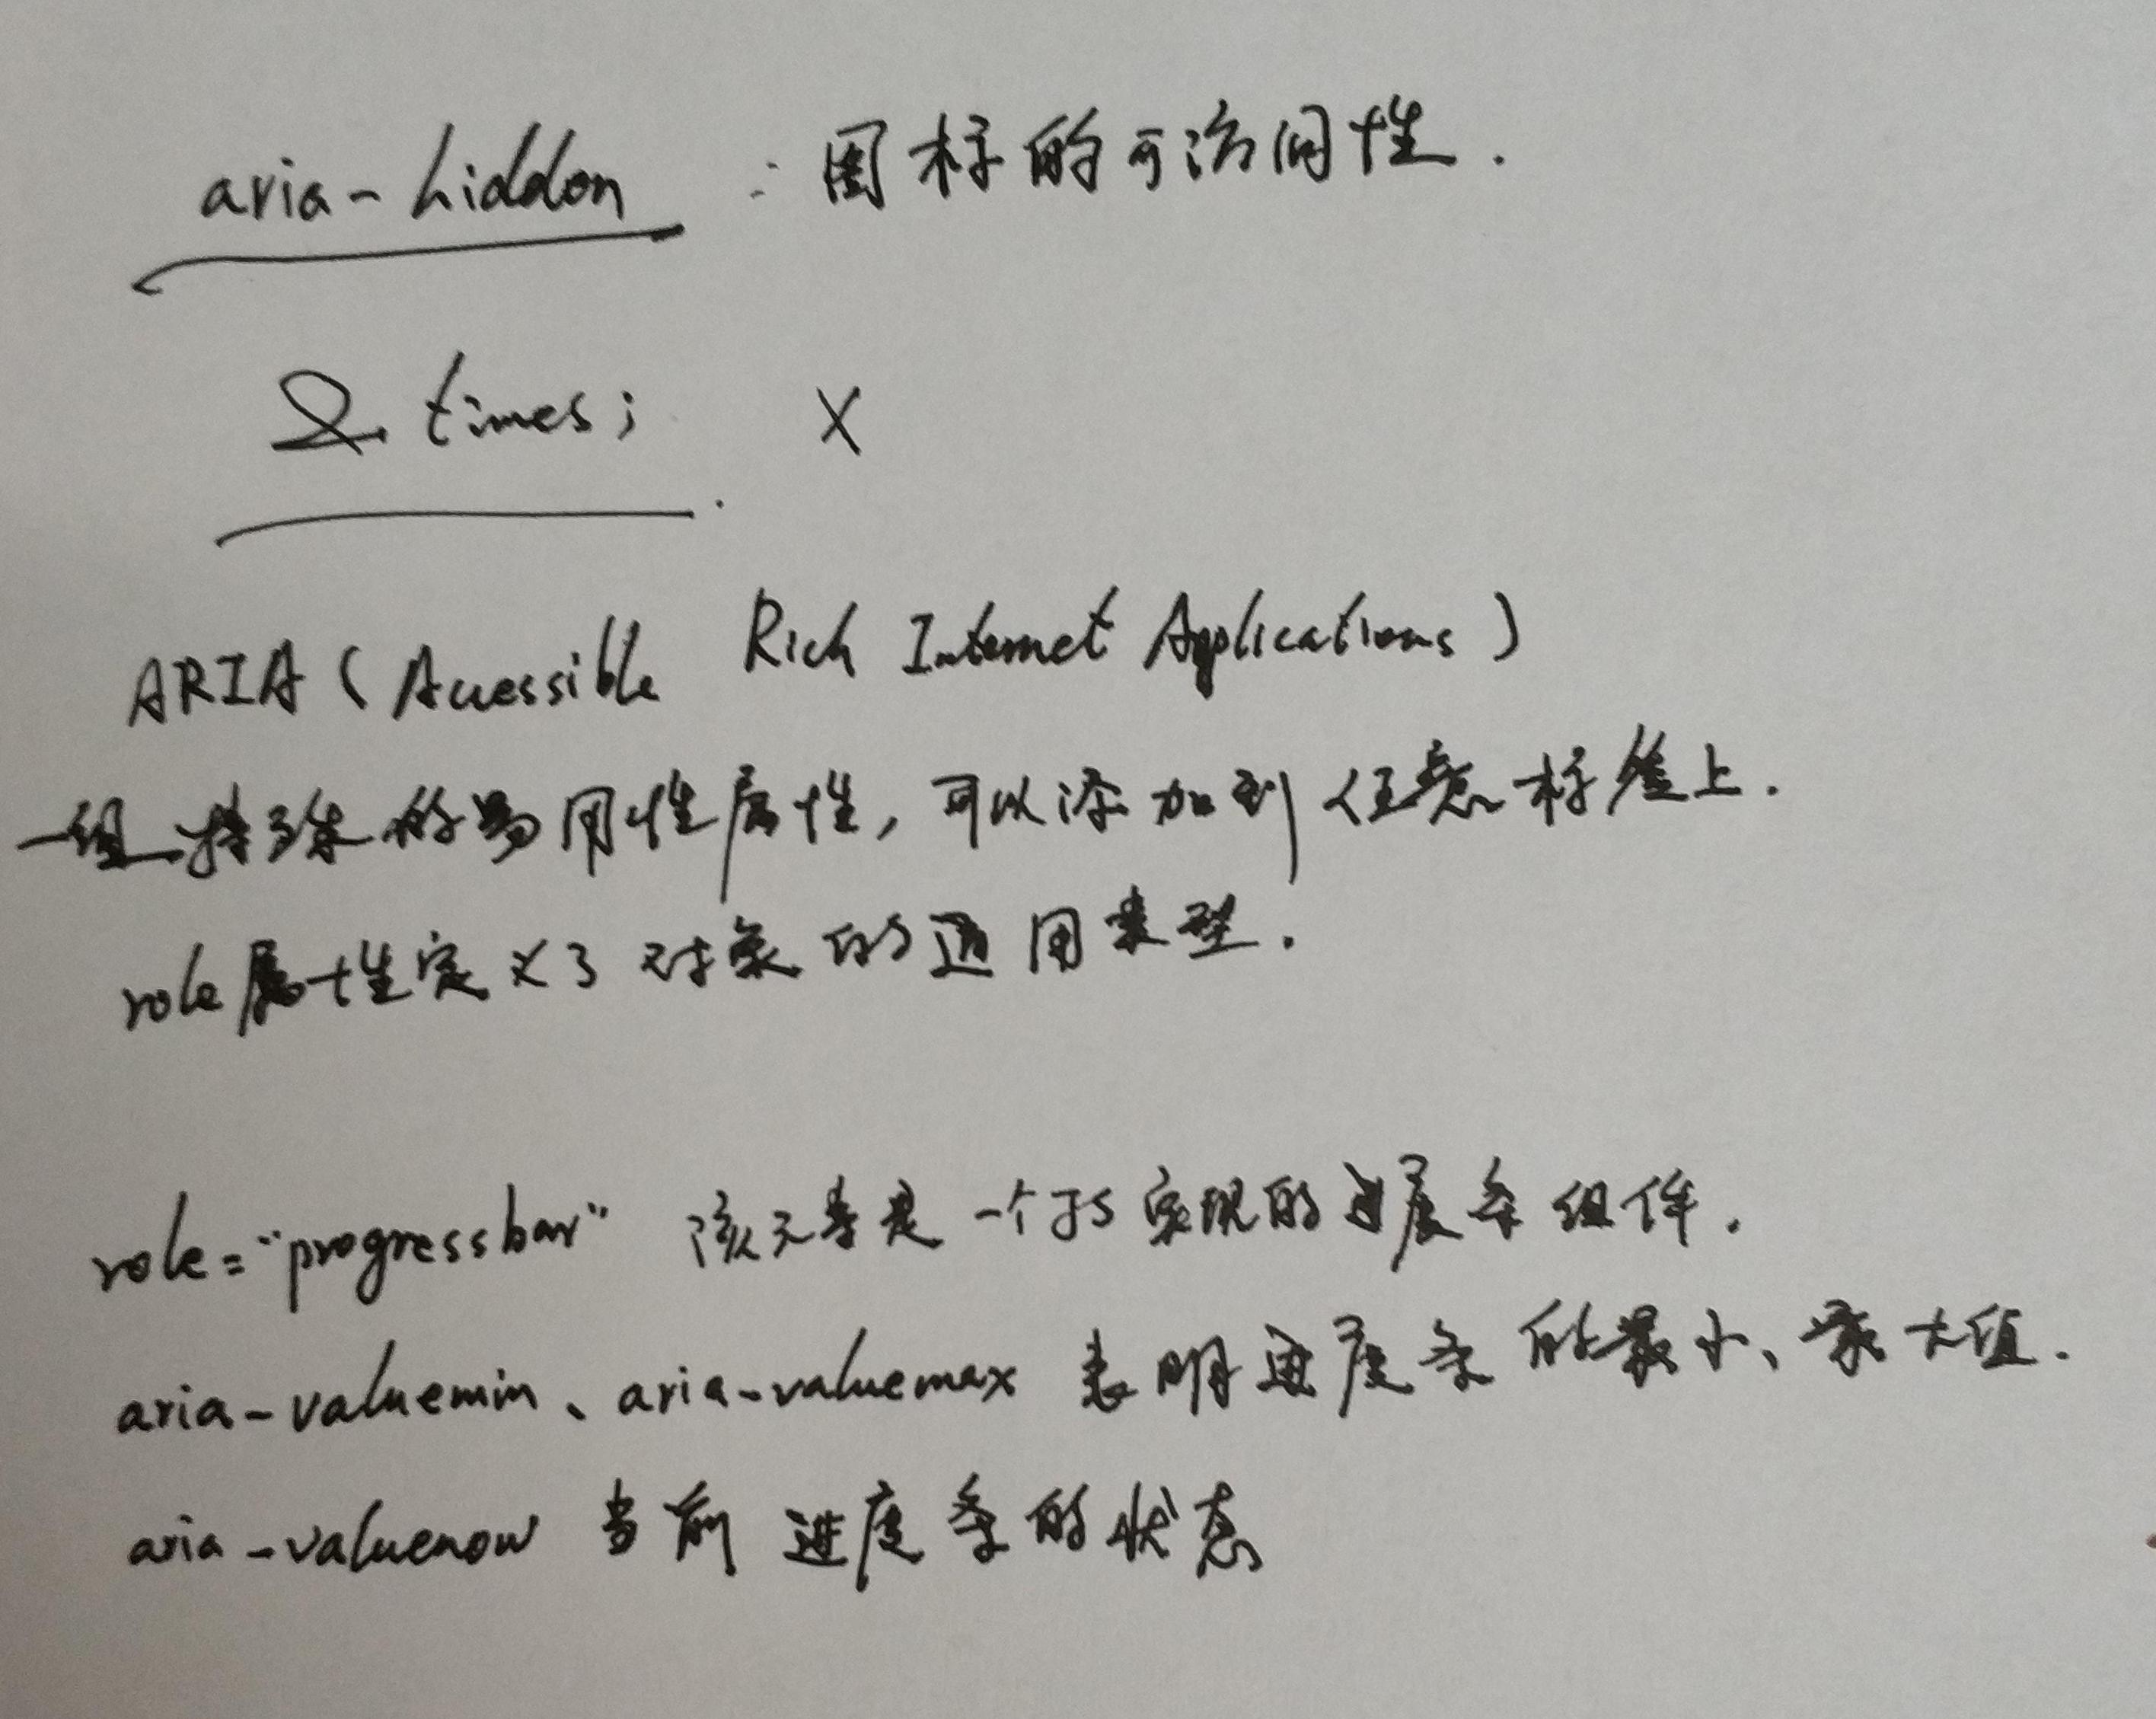 aria-hidden : 图标的可访问性.
&times; ×
ARIA (Accessible Rich Internet Applications)
一组特殊的易用性属性, 可以添加到任意标签上.
role属性定义了对象的通用类型.
role="progressbar" 该元素是一个JS实现的进度条组件.
aria-valuemin、aria-valuemax 表明进度条的最小、最大值.
aria-valuenow 当前进度条的状态